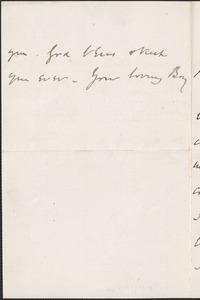 you. God bless & keep
you ever - Your loving Boy